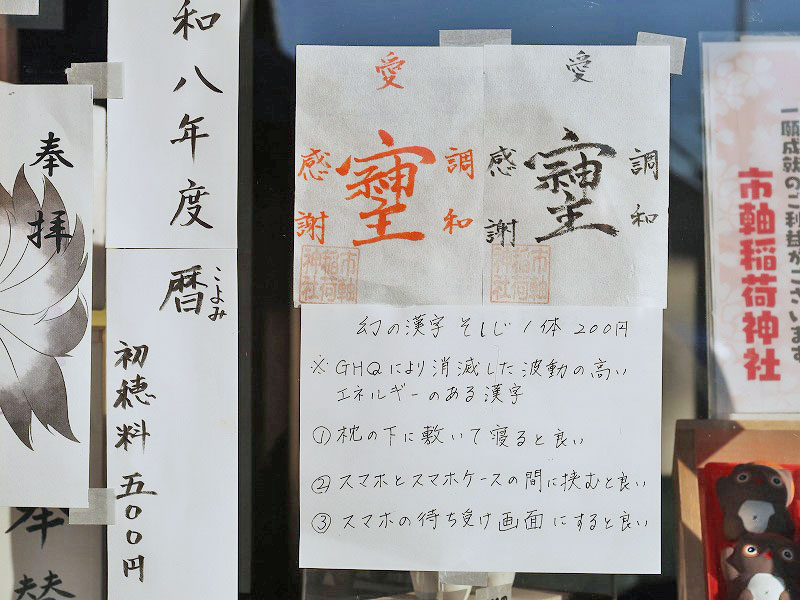 奉拝
奉替
和八年度
暦
こよみ
初穂料 五〇〇円
愛
調和
感謝
市軸稲荷神社
愛
調和
感謝
市軸稲荷神社
幻の漢字 そしじ 1体 200円
※GHQにより消滅した波動の高い
エネルギーのある漢字
①枕の下に敷いて寝ると良い
②スマホとスマホケースの間に挟むと良い
③スマホの待ち受け画面にすると良い
一願成就のご利益がございます
市軸稲荷神社